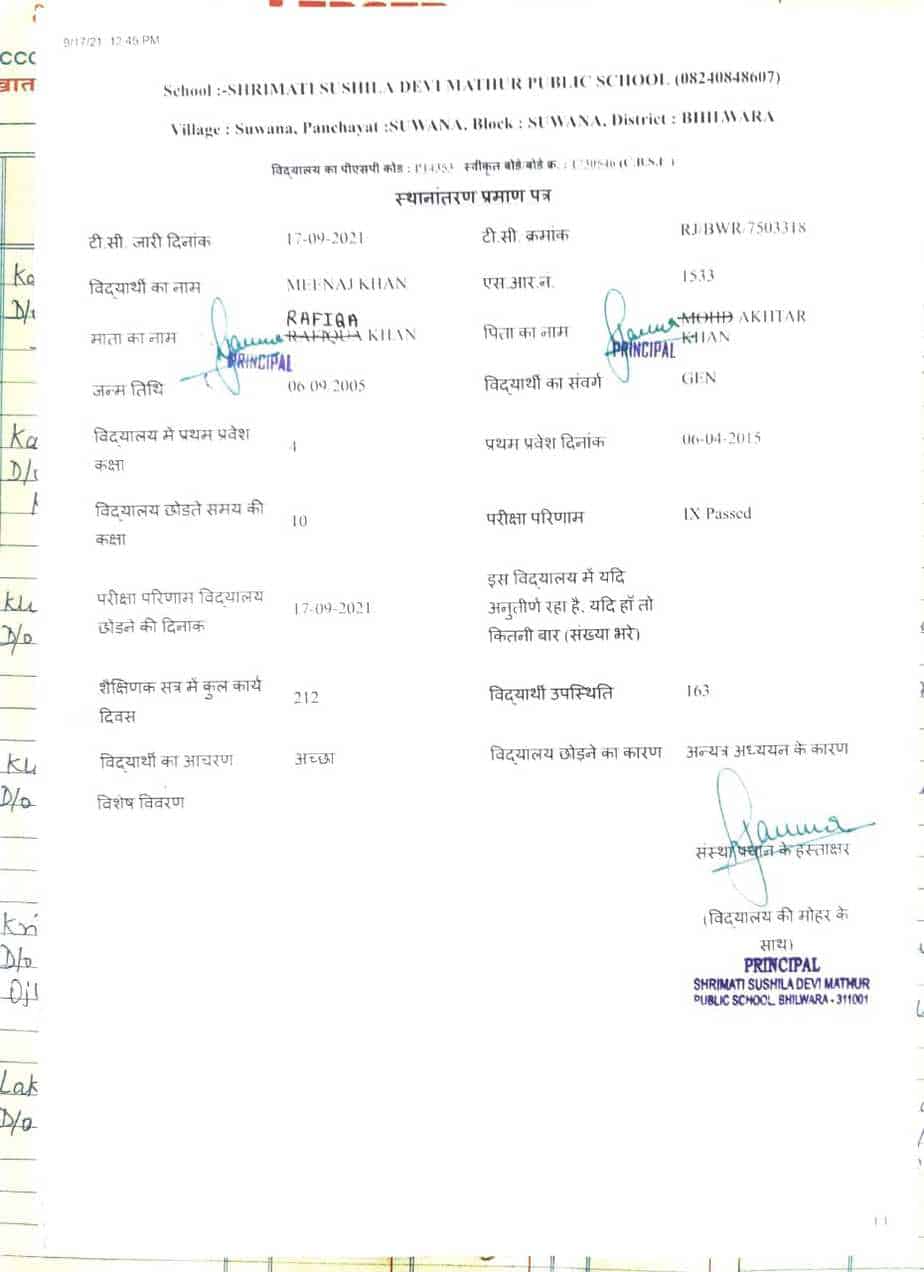 9/17/21 12:45 PM
School :-SHRIMATI SUSHILA DEVI MATHUR PUBLIC SCHOOL (08240848607)
Village : Suwana, Panchayat :SUWANA, Block : SUWANA, District : BHILWARA
विद्यालय का पीएसपी कोड : P14353 स्वीकृत बोर्ड/बोर्ड क्र. : 1730546 (C.B.S.E.)
स्थानांतरण प्रमाण पत्र
टी.सी. जारी दिनांक 17-09-2021 टी.सी. क्रमांक RJ/BWR/7503318
विद्यार्थी का नाम MEENAJ KHAN एस.आर.न. 1533
RAFIQA
माता का नाम RAFIQUA KHAN पिता का नाम MOHD AKHTAR
KHAN
PRINCIPAL PRINCIPAL
जन्म तिथि 06-09-2005 विद्यार्थी का संवर्ग GEN
विद्यालय में प्रथम प्रवेश
कक्षा 4 प्रथम प्रवेश दिनांक 06-04-2015
विद्यालय छोडते समय की
कक्षा 10 परीक्षा परिणाम IX Passed
परीक्षा परिणाम विद्यालय
छोडने की दिनाक 17-09-2021
इस विद्यालय में यदि
अनुतीर्ण रहा है, यदि हाँ तो
कितनी बार (संख्या भरे)
शैक्षिणक सत्र में कुल कार्य
दिवस 212 विद्यार्थी उपस्थिति 163
विद्यार्थी का आचरण अच्छा विद्यालय छोड़ने का कारण अन्यत्र अध्ययन के कारण
विशेष विवरण
संस्था प्रधान के हस्ताक्षर
(विद्यालय की मोहर के
साथ)
PRINCIPAL
SHRIMATI SUSHILA DEVI MATHUR
PUBLIC SCHOOL, BHILWARA - 311001
Ka
D/
Ka
D/
Ku
D/o
KU
D/o
Kri
D/o
Oj
Lak
D/o